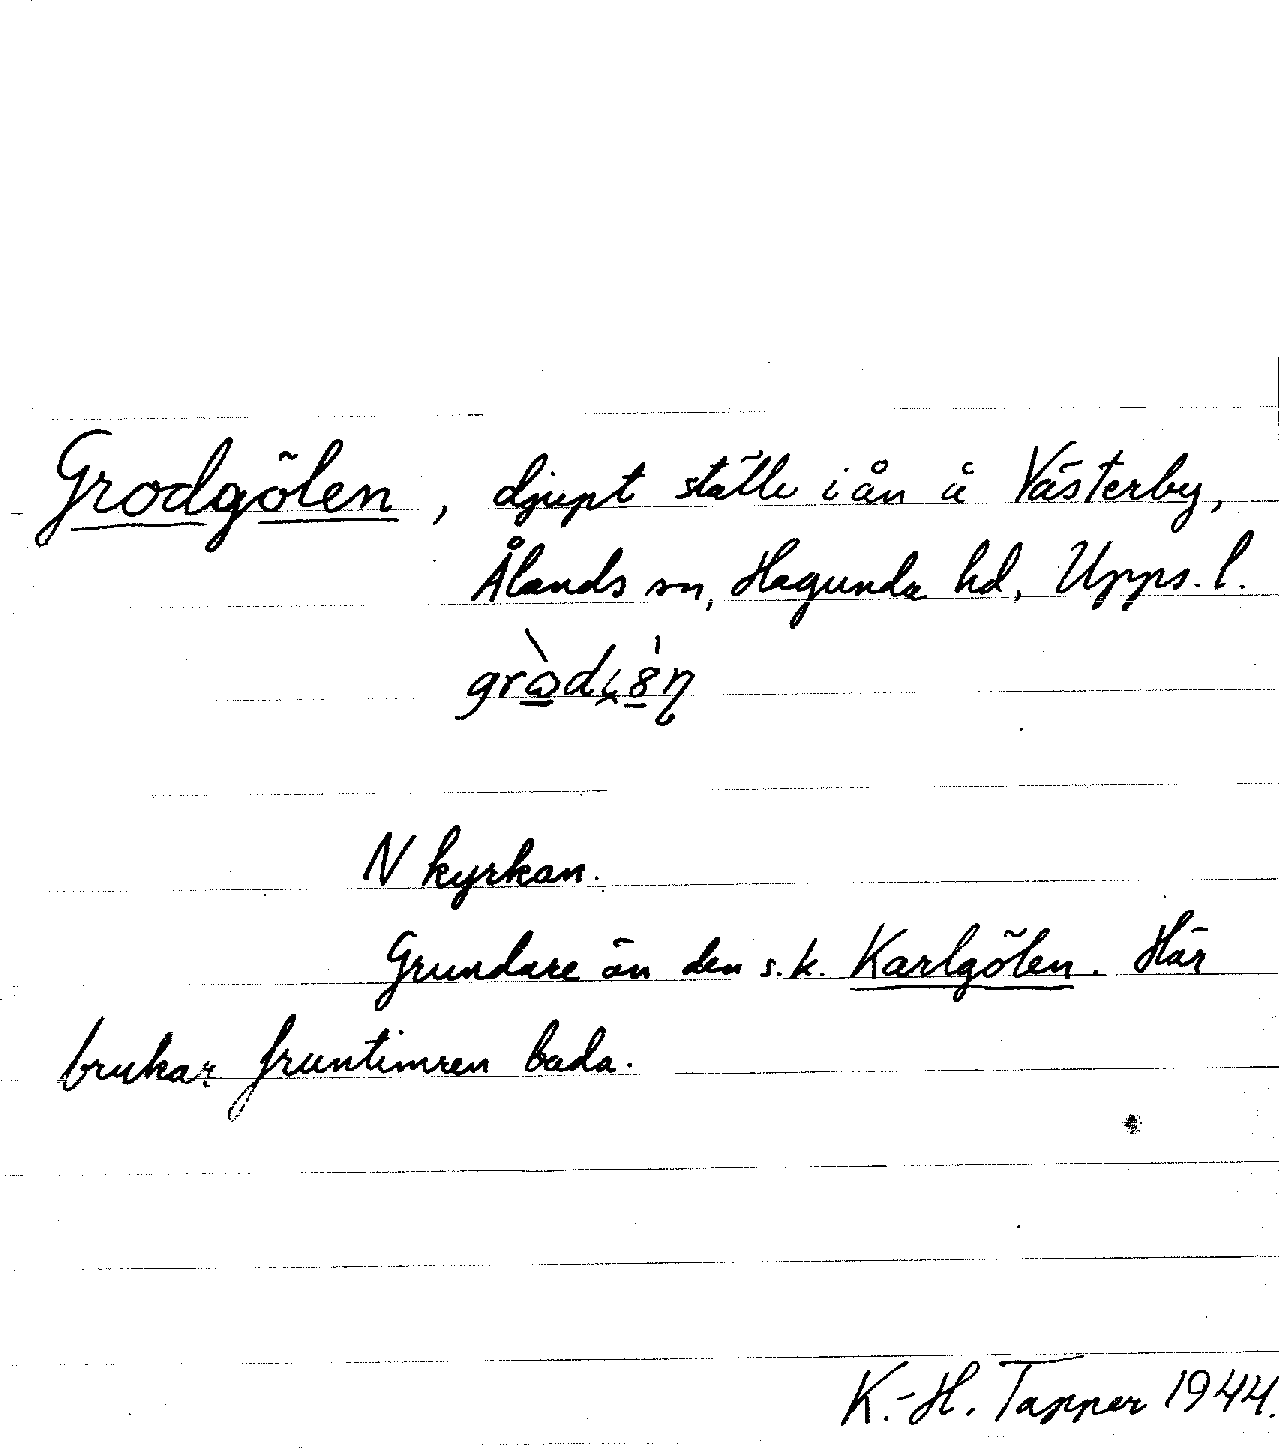 Grodgölen, djupt ställe i ån å Västerby,
Ålands sn, Hagunda hd, Upps. l.
N kyrkan.
Grundare än den s.k. Karlgölen. Här
brukar fruntimren bada.
K.-H. Tapper 1944.